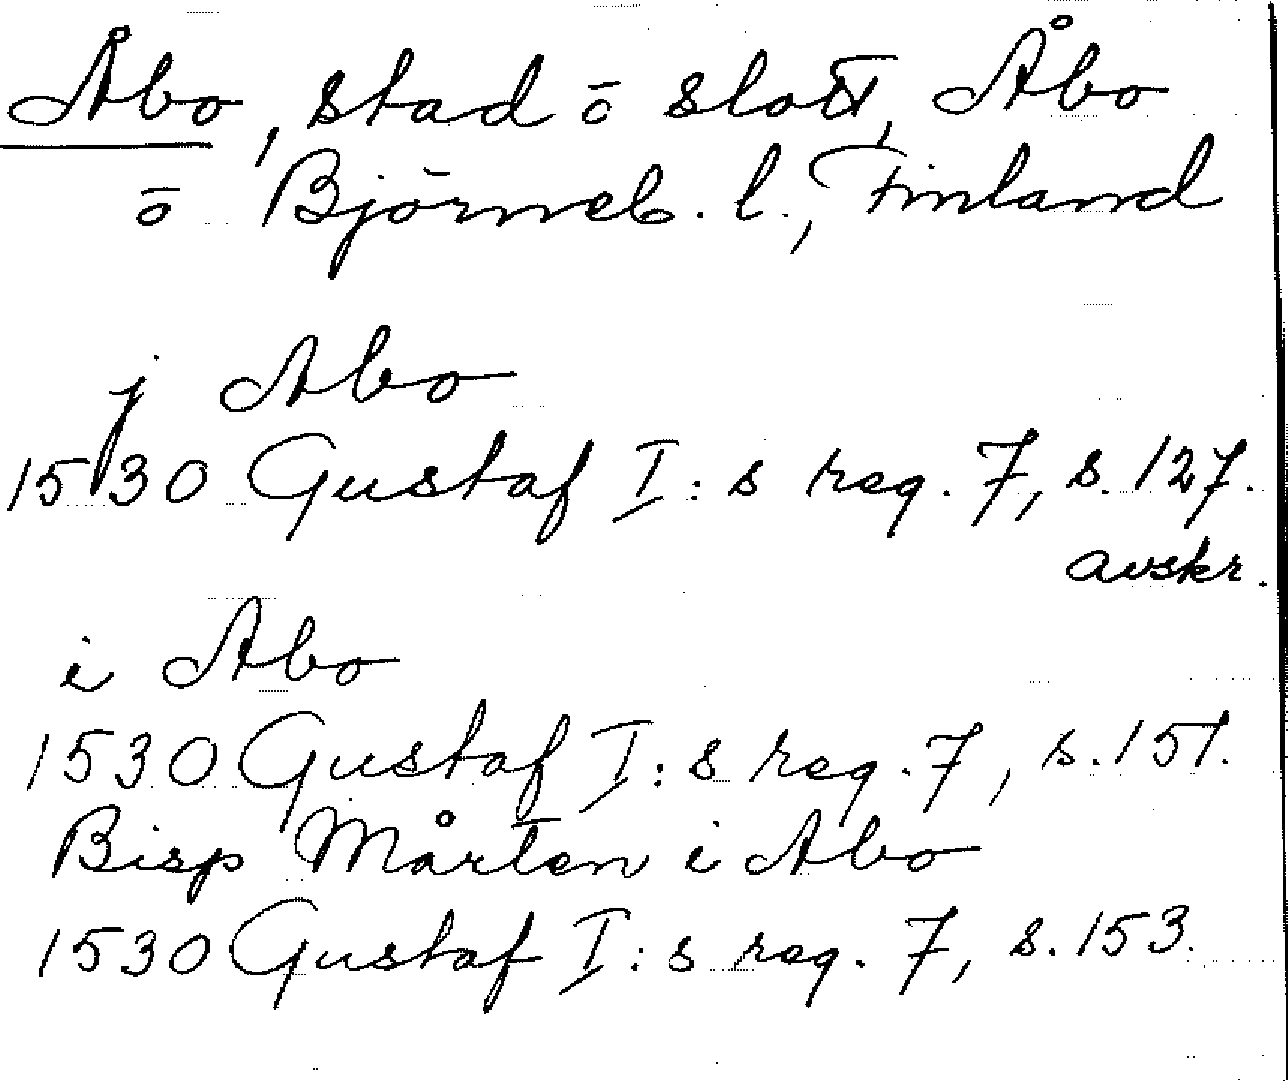 Åbo, stad ō slott, Åbo
ō Björneb. l., Finland
j Abo
1530 Gustaf I:s reg. 7, s. 127.
avskr.
i Abo
1530 Gustaf I:s reg. 7, s. 151.
Bisp Mårten i Abo
1530 Gustaf I:s reg. 7, s. 153.